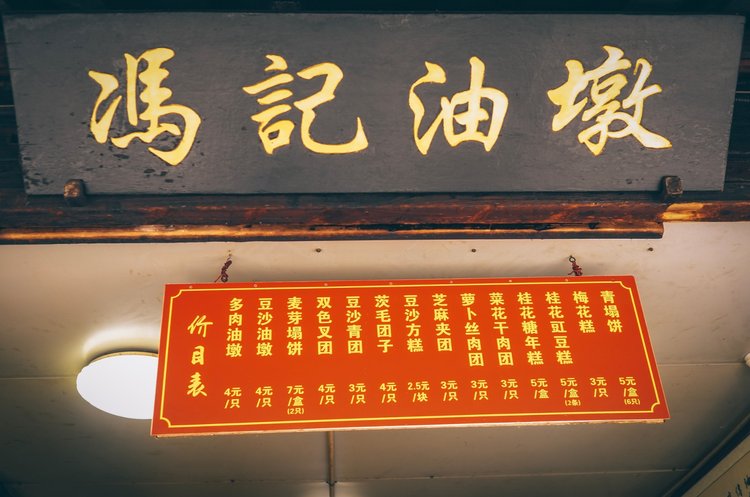 馮記油墩
价目表
多肉油墩 4元/只
豆沙油墩 4元/只
麦芽塌饼 7元/盒(2只)
双色叉团 4元/只
豆沙青团 3元/只
茨毛团子 4元/只
豆沙方糕 2.5元/块
芝麻夹团 3元/只
萝卜丝肉团 3元/只
菜花干肉团 3元/只
桂花糖年糕 5元/盒
桂花豇豆糕 5元/盒(2条)
梅花糕 3元/只
青塌饼 5元/盒(6只)